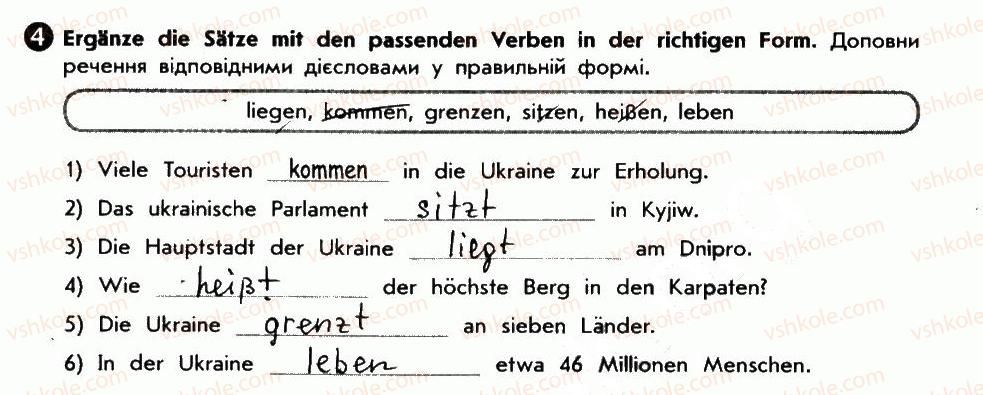 4 Ergänze die Sätze mit den passenden Verben in der richtigen Form. Доповни
речення відповідними дієсловами у правильній формі.
liegen, kommen, grenzen, sitzen, heißen, leben
1) Viele Touristen kommen in die Ukraine zur Erholung.
2) Das ukrainische Parlament sitzt in Kyjiw.
3) Die Hauptstadt der Ukraine liegt am Dnipro.
4) Wie heißt der höchste Berg in den Karpaten?
5) Die Ukraine grenzt an sieben Länder.
6) In der Ukraine leben etwa 46 Millionen Menschen.